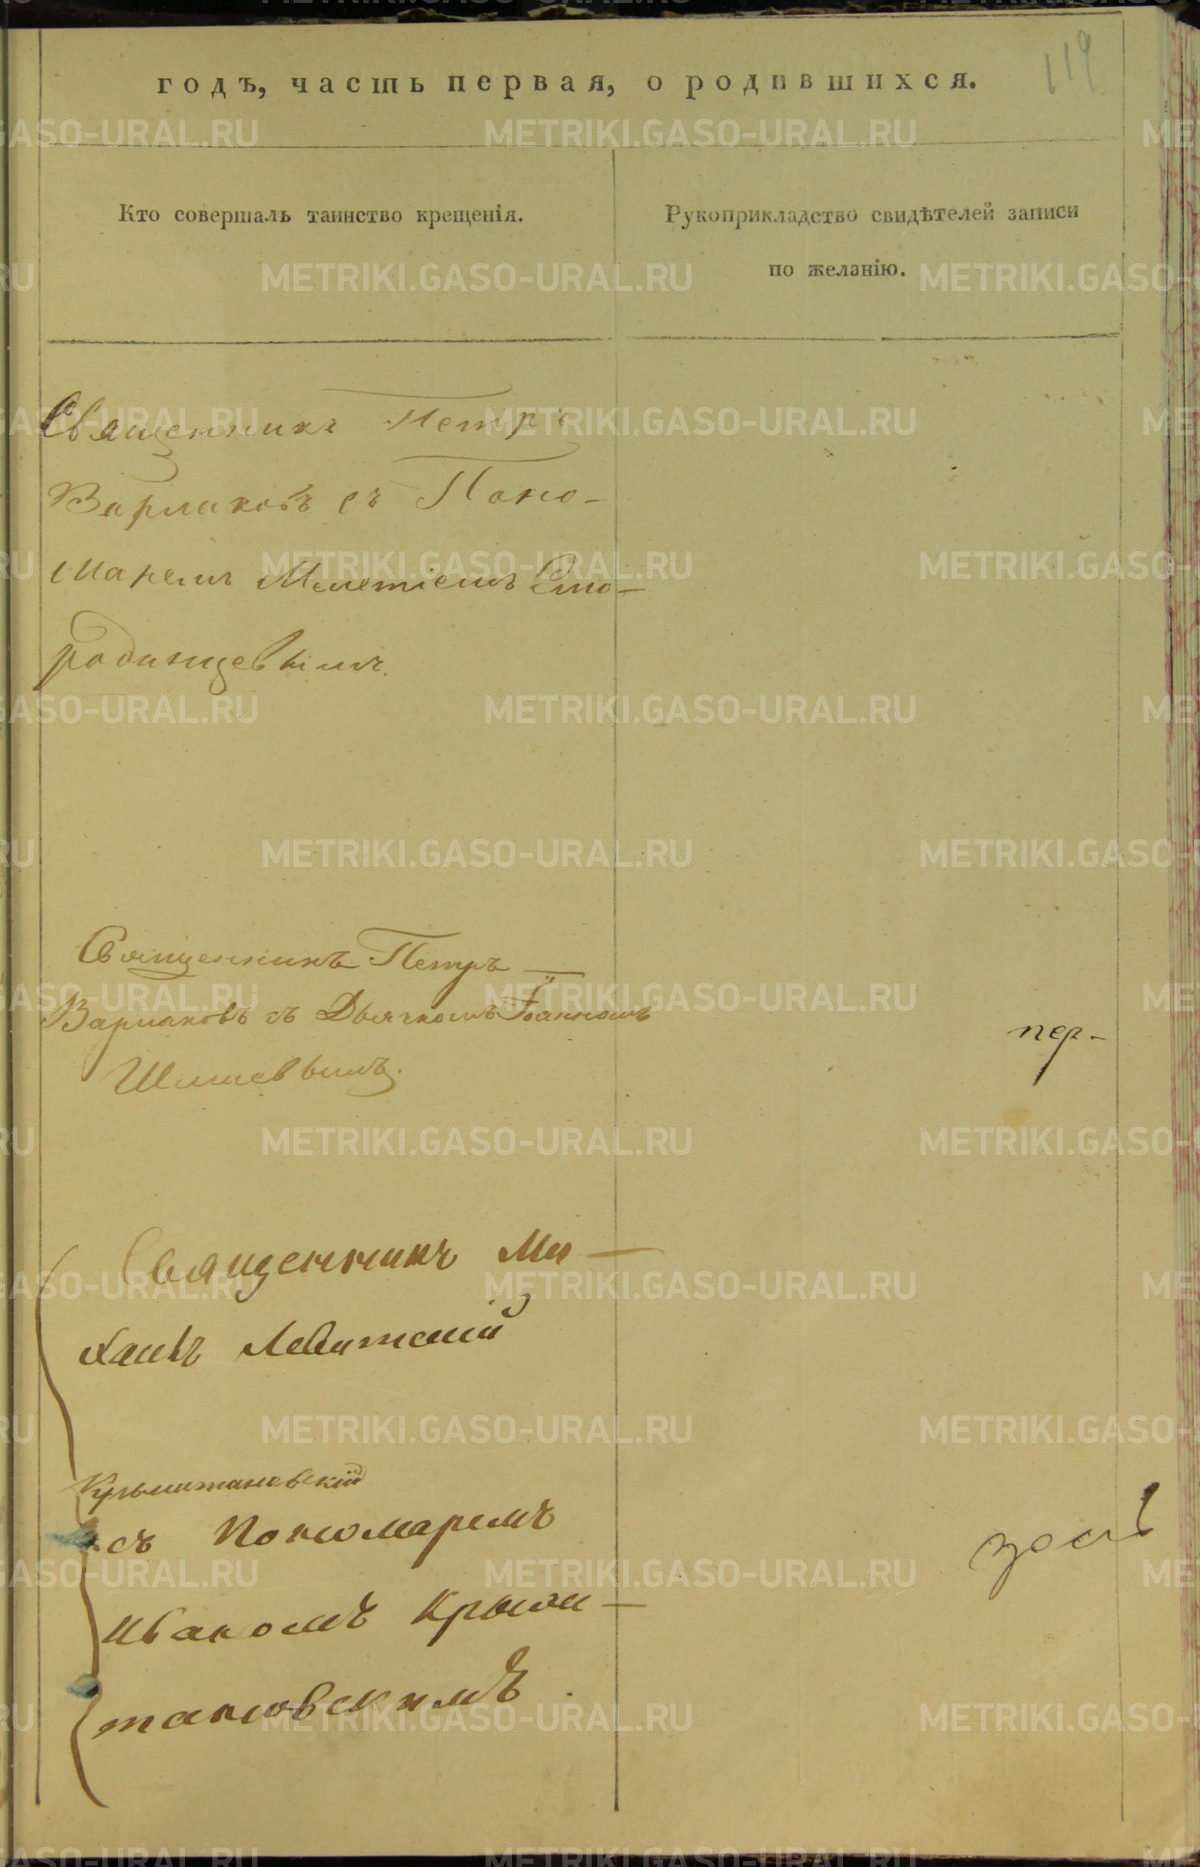 119
годъ, часть первая, о родившихся.
Кто совершалъ таинство крещенія.
Рукоприкладство свидѣтелей записи
по желанію.
Священникъ Петръ
Варлаковъ съ Поно-
маремъ Мелетіемъ Смо-
родинцевымъ.
Священникъ Петръ
Варлаковъ съ Дьячкомъ Іоанномъ
Шишевымъ.
пер-
Священникъ Ми-
хаилъ Левитскій
Крыжтановскій
съ Пономаремъ
Иваномъ Крыжи-
тановскимъ.
METRIKI.GASO-URAL.RU